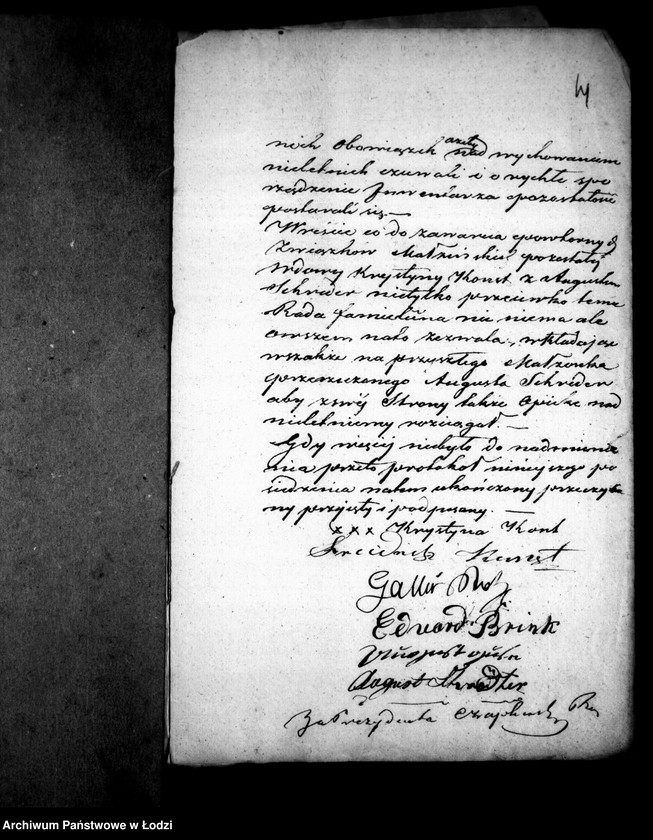 4
nich obowiązek ażeby nad wychowaniem
nieletnich czuwali i o rychłe spo
rządzenie Inwentarza o pozostałoś
postarali się. —
Wreście co do zawarcia powtórnych
Związków Małżeńskich pozostałej
wdowy Krystyny Konst z Augustem
Schreider nietylko przeciwko temu
Rada familijna nic niema ale
owszem nato zezwala, wkładając
wszakże na przyszłego Małżonka
poprzeczonego Augusta Schreider
aby z swej Strony także opiekę nad
nieletniemy rozciągał. —
Gdy więcej niebyło do nadmienie
nia przeto protokół niniejszego po
siedzenia natem ukończony przeczyta
ny przyjęty i podpisany. —
x x x Krystyna Konst
Kunst
Eduard Brink
August
Za Prezydenta
Archiwum Państwowe w Łodzi